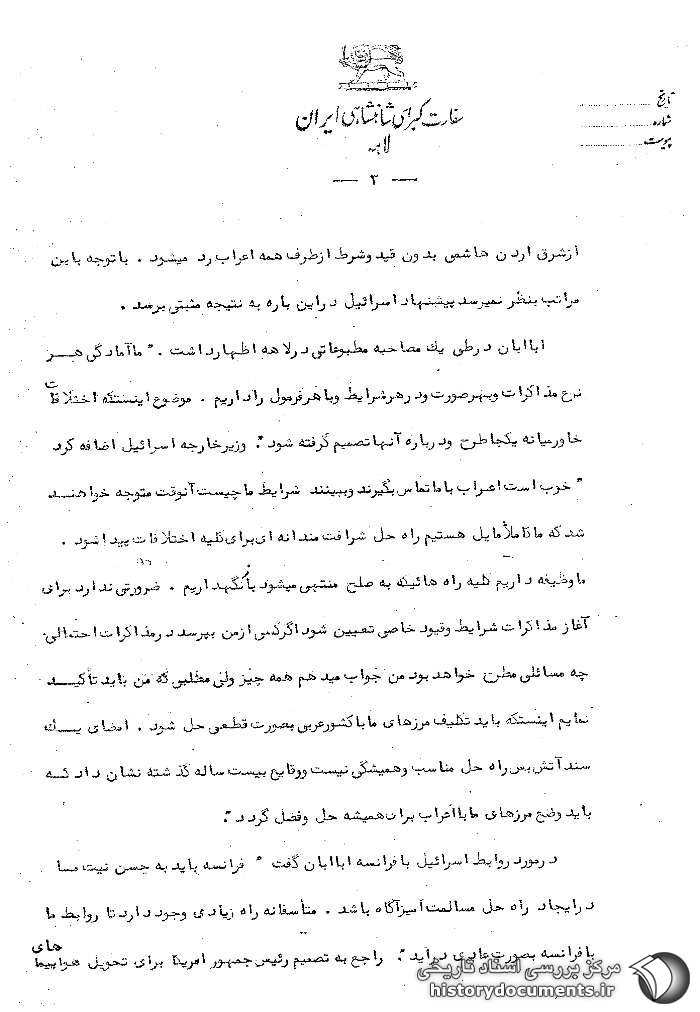 سفارت کبرای شاهنشاهی ایران
لاهه
تاریخ
شماره
پیوست
— ۳ —
ازشرق اردن هاشمی بدون قید وشرط ازطرف همه اعراب رد میشود . باتوجه باین
مراتب بنظر نمیرسد پیشنهاد اسرائیل دراین باره به نتیجه مثبتی برسد .
اباابان درطی یک مصاحبه مطبوعاتی درلاهه اظهارداشت . " ماآمادگی هر
نوع مذاکرات وبهرصورت ودرهرشرایط وباهرفرمول راداریم . موضوع اینستکه اختلافات
خاورمیانه یکجا طرح ودرباره آنها تصمیم گرفته شود ." وزیرخارجه اسرائیل اضافه کرد
" خوب است اعراب باماتماس بگیرند وببینند شرایط ماچیست آنوقت متوجه خواهند
شد که ماکاملاً مایل هستیم راه حل شرافت مندانه ای برای کلیه اختلافات پیداشود .
ماوظیفه داریم کلیه راه هائیکه به صلح منتهی میشود بازنگهداریم . ضرورتی ندارد برای
آغاز مذاکرات شرایط وقیود خاصی تعیین شود اگرکسی ازمن بپرسد درمذاکرات احتمالی
چه مسائلی مطرح خواهد بود من جواب میدهم همه چیز ولی مطلبی که من باید تأکید
نمایم اینستکه باید تکلیف مرزهای ماباکشورعربی بصورت قطعی حل شود . امضای یک
سند آتش بس راه حل مناسب وهمیشگی نیست ووقایع بیست ساله گذشته نشان داد که
باید وضع مرزهای مابااعراب برای همیشه حل وفصل گردد ."
درمورد روابط اسرائیل بافرانسه اباابان گفت " فرانسه باید به حسن نیت ما
درایجاد راه حل مسالمت آمیزآگاه باشد . متأسفانه راه زیادی وجود دارد تا روابط ما
بافرانسه بصورت عادی درآید ." راجع به تصمیم رئیس جمهور امریکا برای تحویل هواپیما های
مرکز بررسی اسناد تاریخی
historydocuments.ir